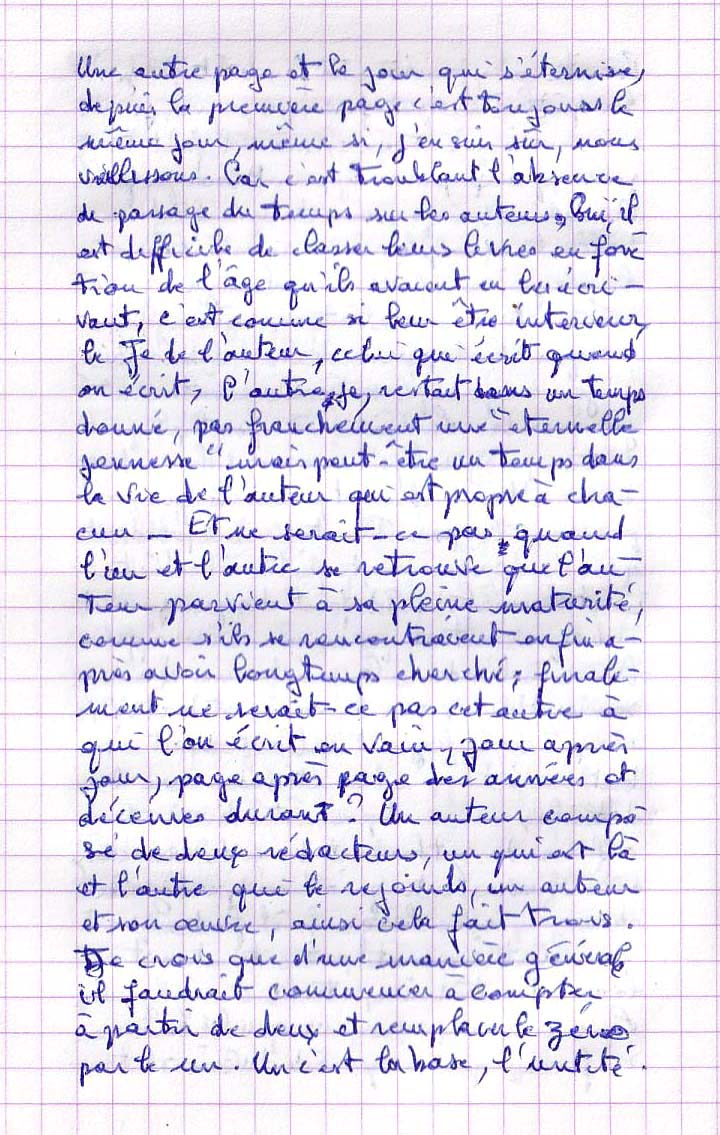 Une autre page et le jour qui s'éternise,
depuis la première page c'est toujours le
même jour, même si, j'en suis sûr, nous
vieillissons. Car c'est troublant l'absence
de passage du temps sur les auteurs, Oui, il
est difficile de classer leurs livres en fonc
tion de l'âge qu'ils avaient en les écri-
vant, c'est comme si leur être intérieur,
le Je de l'auteur, celui qui écrit quand
on écrit, l'autre je, restait dans un temps
donné, pas franchement une "éternelle
jeunesse" mais peut-être un temps dans
la vie de l'auteur qui est propre à cha-
cun _ Et ne serait-ce pas quand
l'un et l'autre se retrouve que l'au-
teur parvient à sa pleine maturité,
comme s'ils se rencontraient enfin a-
près avoir longtemps cherché; finale-
ment ne serait-ce pas cet autre à
qui l'on écrit en vain, jour après
jour, page après page des années et
décénies durant? Un auteur compo
sé de deux rédacteurs, un qui est là
et l'autre qui le rejoinds, un auteur
et son œuvre, ainsi cela fait trois.
Je crois que d'une manière général
il faudrait commencer à compter
à partir de deux et remplacer le zéro
par le un. Un c'est la base, l'untité.